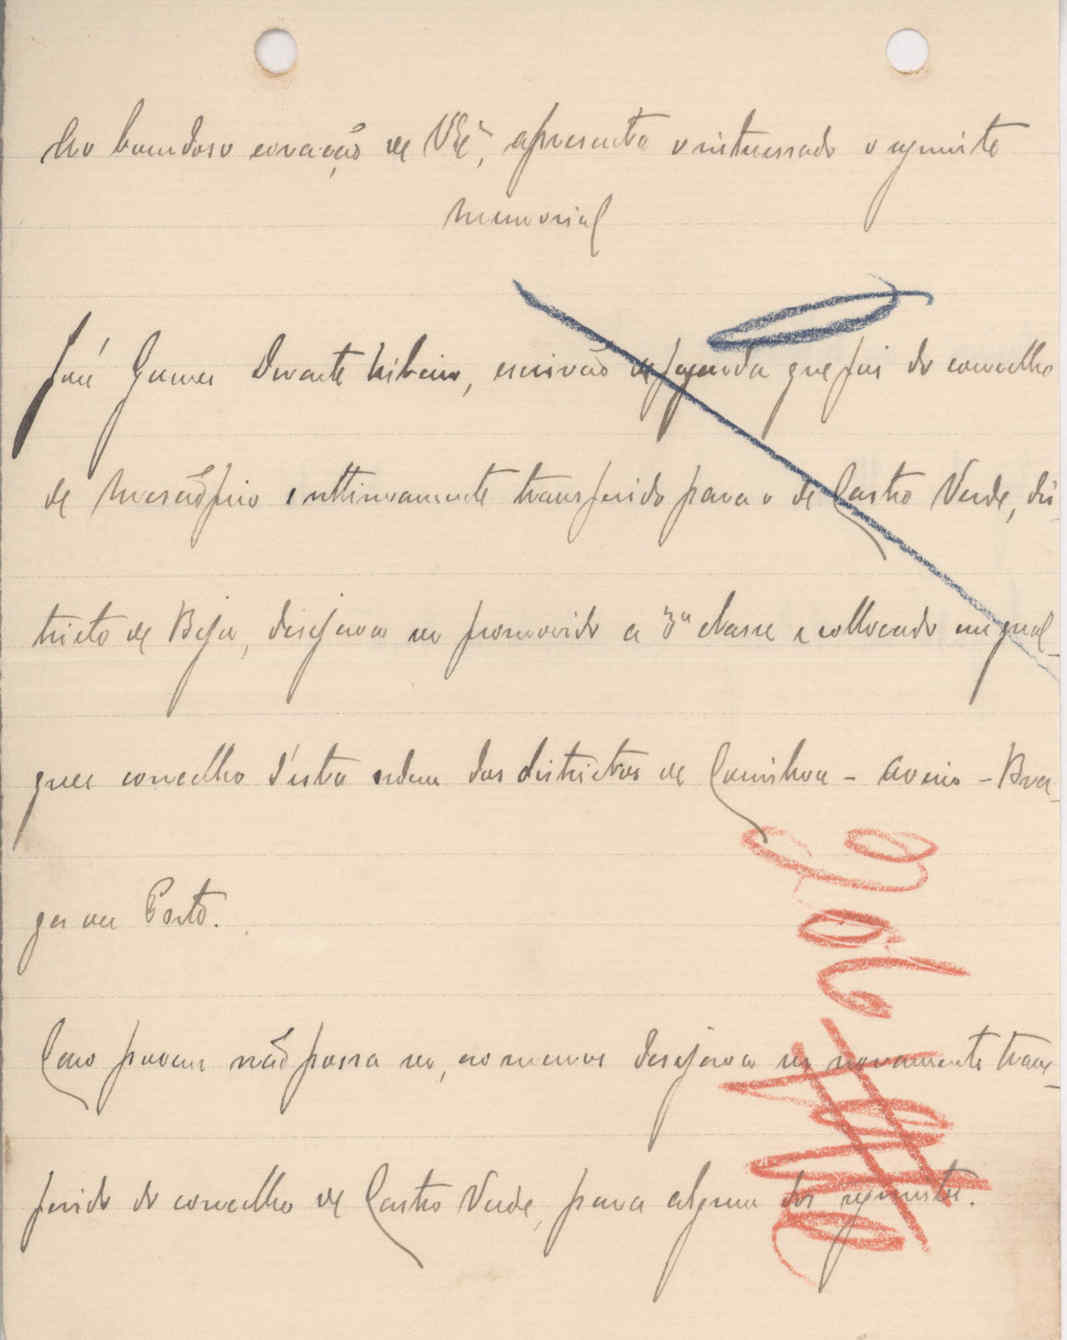 Ao bondoso coração de V. Exª, apresenta o interessado o seguinte
Memorial
José Gomes Duarte Ribeiro, escrivão de fazenda que foi do concelho
de Mesão frio e ultimamente transferido para o de Castro Verde, dis-
tricto de Beja, desejava ser promovido a 3ª classe e collocado em qual-
quer concelho d'esta ordem dos districtos de Coimbra - Aveiro - Bra-
ga ou Porto.
Caso porem não possa ser, ao menos desejava ser novamente trans-
ferido do concelho de Castro Verde, para algum dos seguintes.